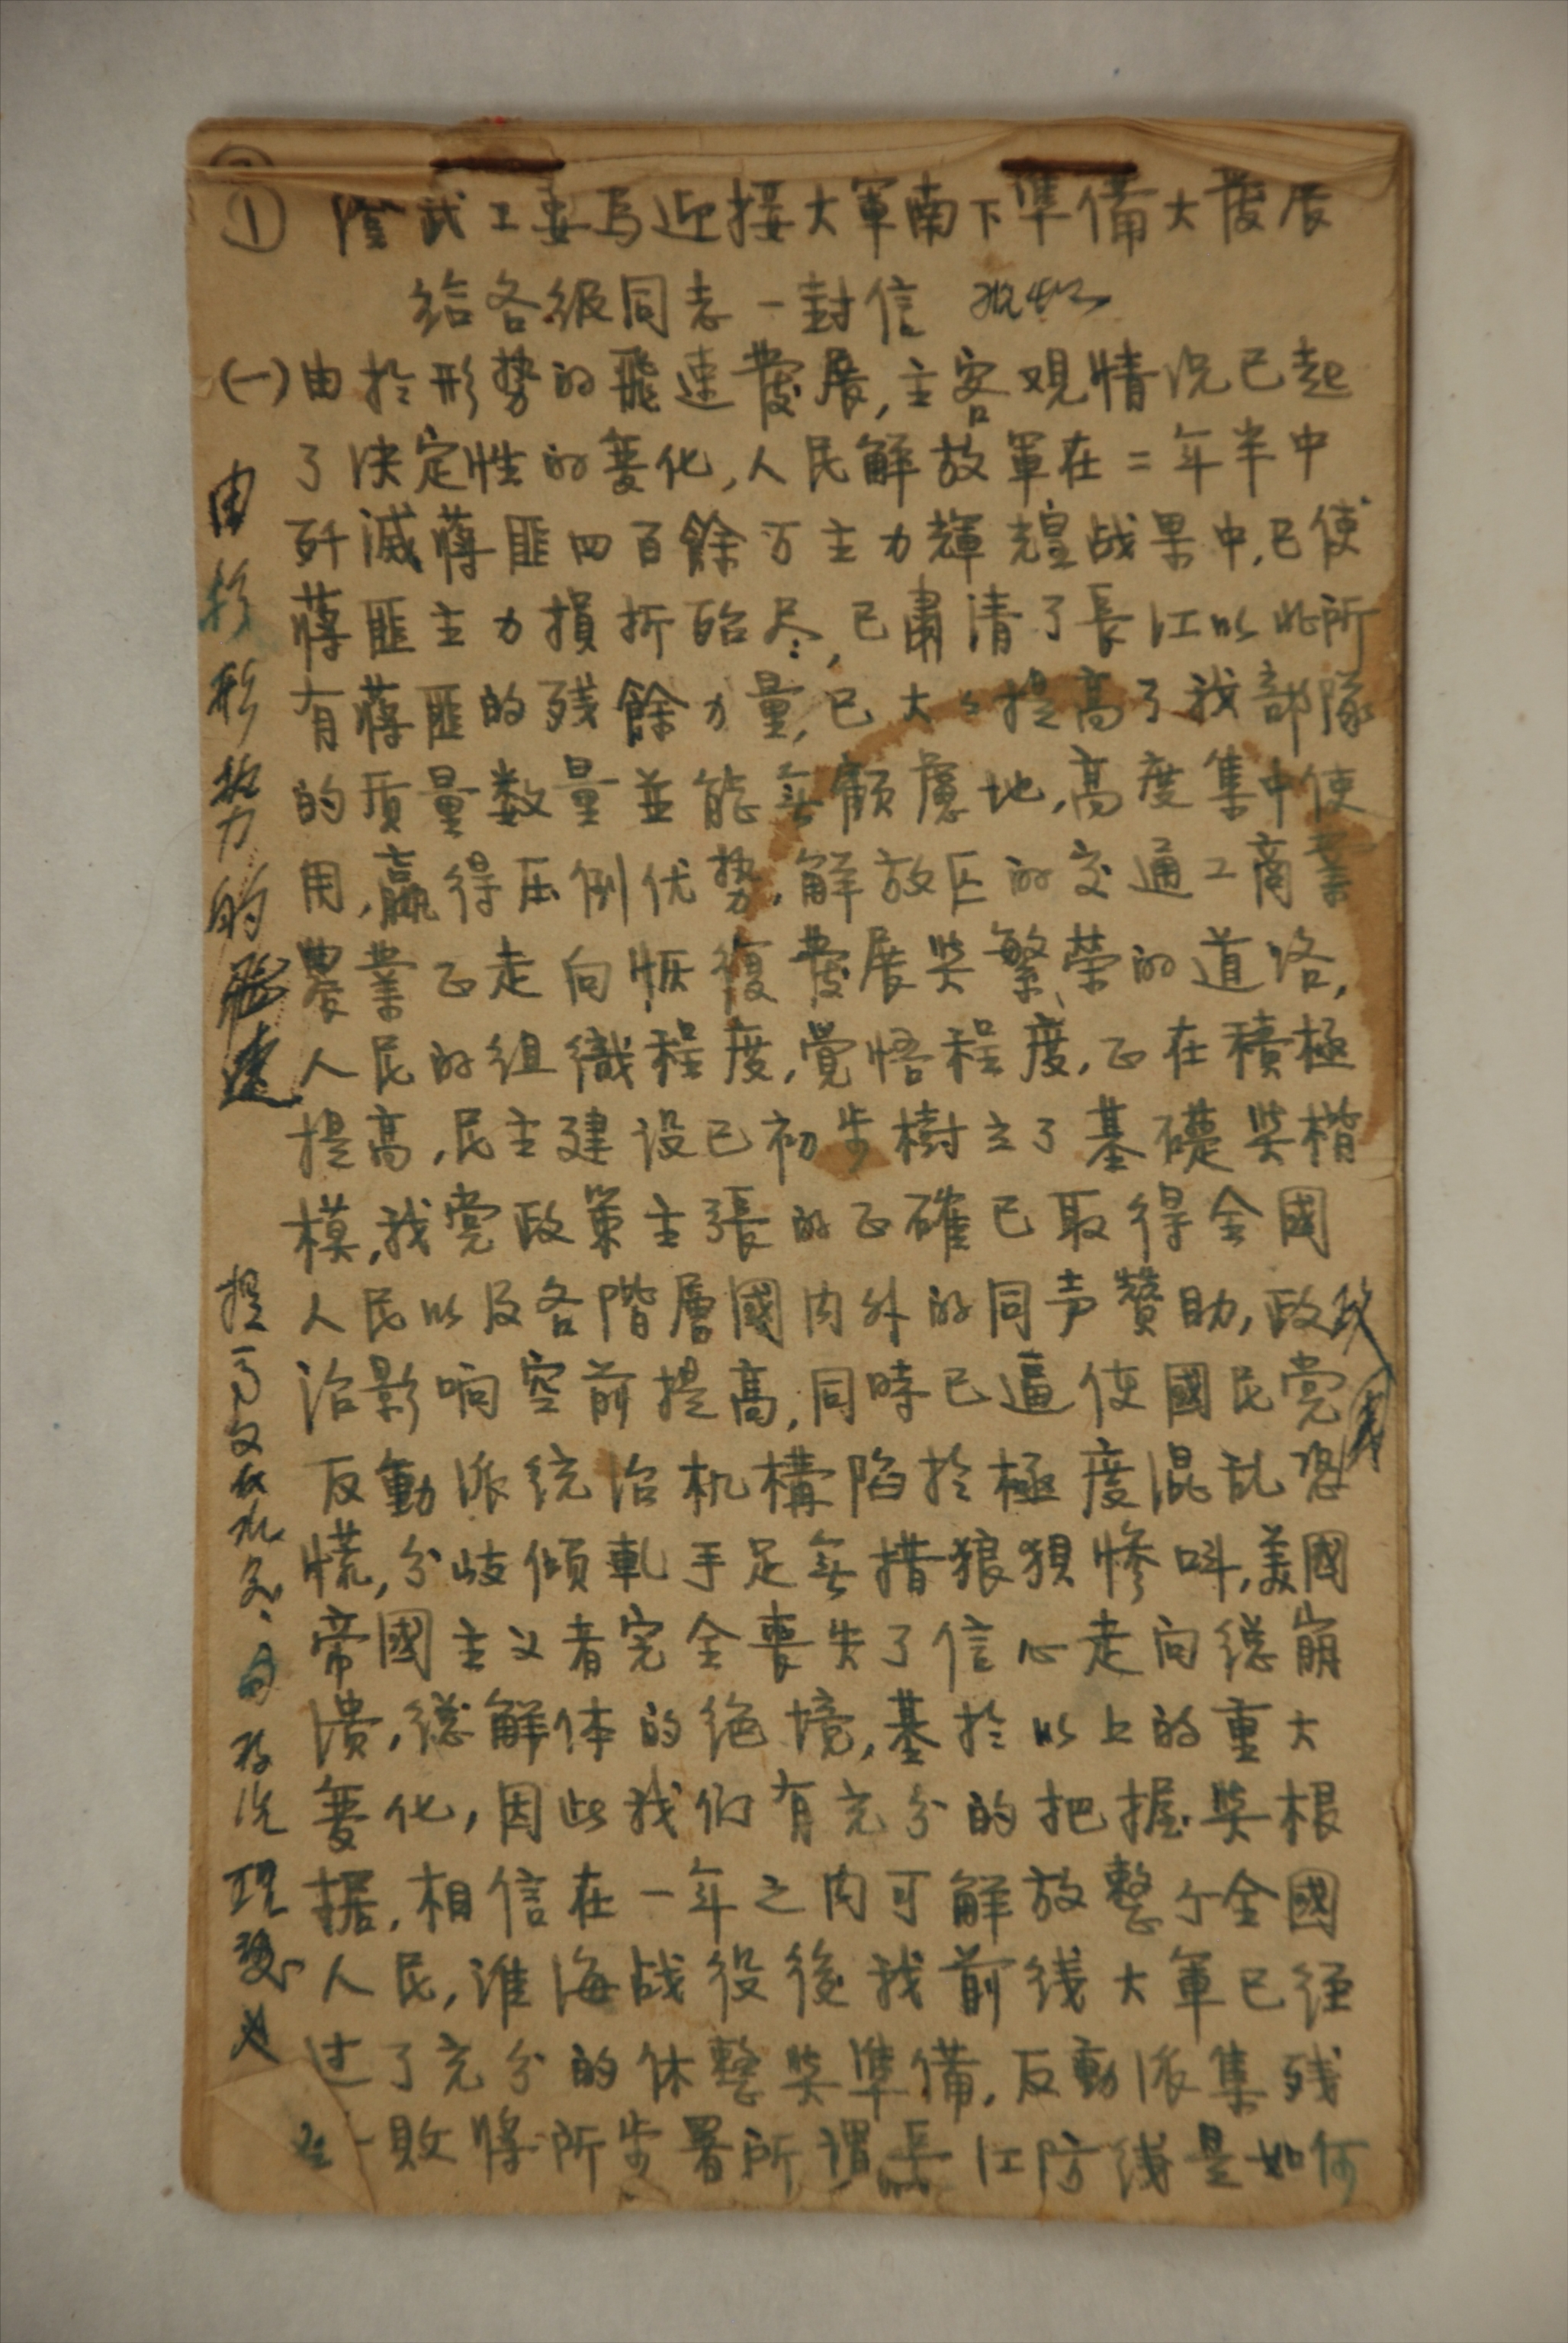 ① 陰武工委為迎接大軍南下準備大發展
給各级同志一封信
(一)由於形势的飛速發展,主客观情况已起
了决定性的变化,人民解放軍在二年半中
歼滅蔣匪四百餘万主力輝煌战果中,已使
蔣匪主力損折殆尽,已肅清了長江以北所
有蔣匪的残餘力量,已大々提高了我部隊
的质量数量並能無顧慮地,高度集中使
用,贏得压倒优势,解放区的交通工商業
農業正走向恢復發展與繁荣的道路,
人民的组織程度,覺悟程度,正在積極
提高,民主建设已初步樹立了基礎與楷
模,我党政策主張的正確已取得全國
人民以及各階層國内外的同声贊助,政
治影响空前提高,同時已逼使國民党
反動派统治机構陷於極度混乱恐
慌,分歧傾軋手足無措狼狽惨呌,美國
帝國主义者完全喪失了信心走向總崩
潰,總解体的绝境,基於以上的重大
变化,因此我们有充分的把握與根
据,相信在一年之内可解放整个全國
人民,淮海战役後我前线大軍已经
过了充分的休整與準備,反動派集残
敗将所步署所謂長江防线是如何
由於形势的飛速
提高